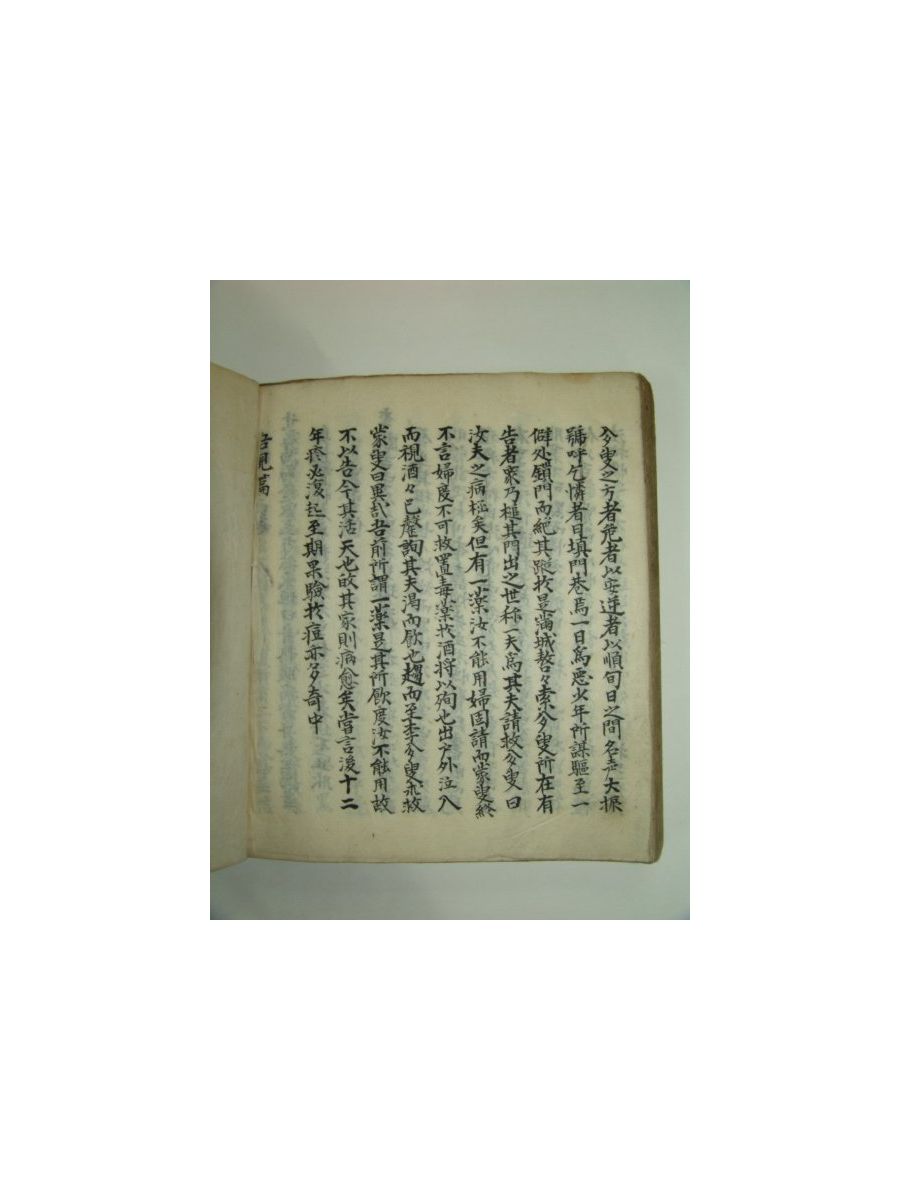 叟之方者危者以安逆者以順旬日之間名聲大振
號呼乞憐者日填門巷焉一日爲惡少年所謀驅至一
僻處鎖門而絶其蹤於是滿城嗸々索叟所在有
告者衆乃槌其門出之世称一夫爲其夫請救叟曰
汝夫之病極矣但有一藥汝不能用婦固請而蒙叟終
不言婦度不可救置毒藥於酒將以殉也出戶外泣入
而視酒々已罄詢其夫渴而飮也趨而至李叟求救
蒙叟曰異哉吾前所謂一藥是其所飮度汝不能用故
不以告今其活天也的其家則病愈矣嘗言後十二
年疼必復起至期果驗於痘亦多奇中